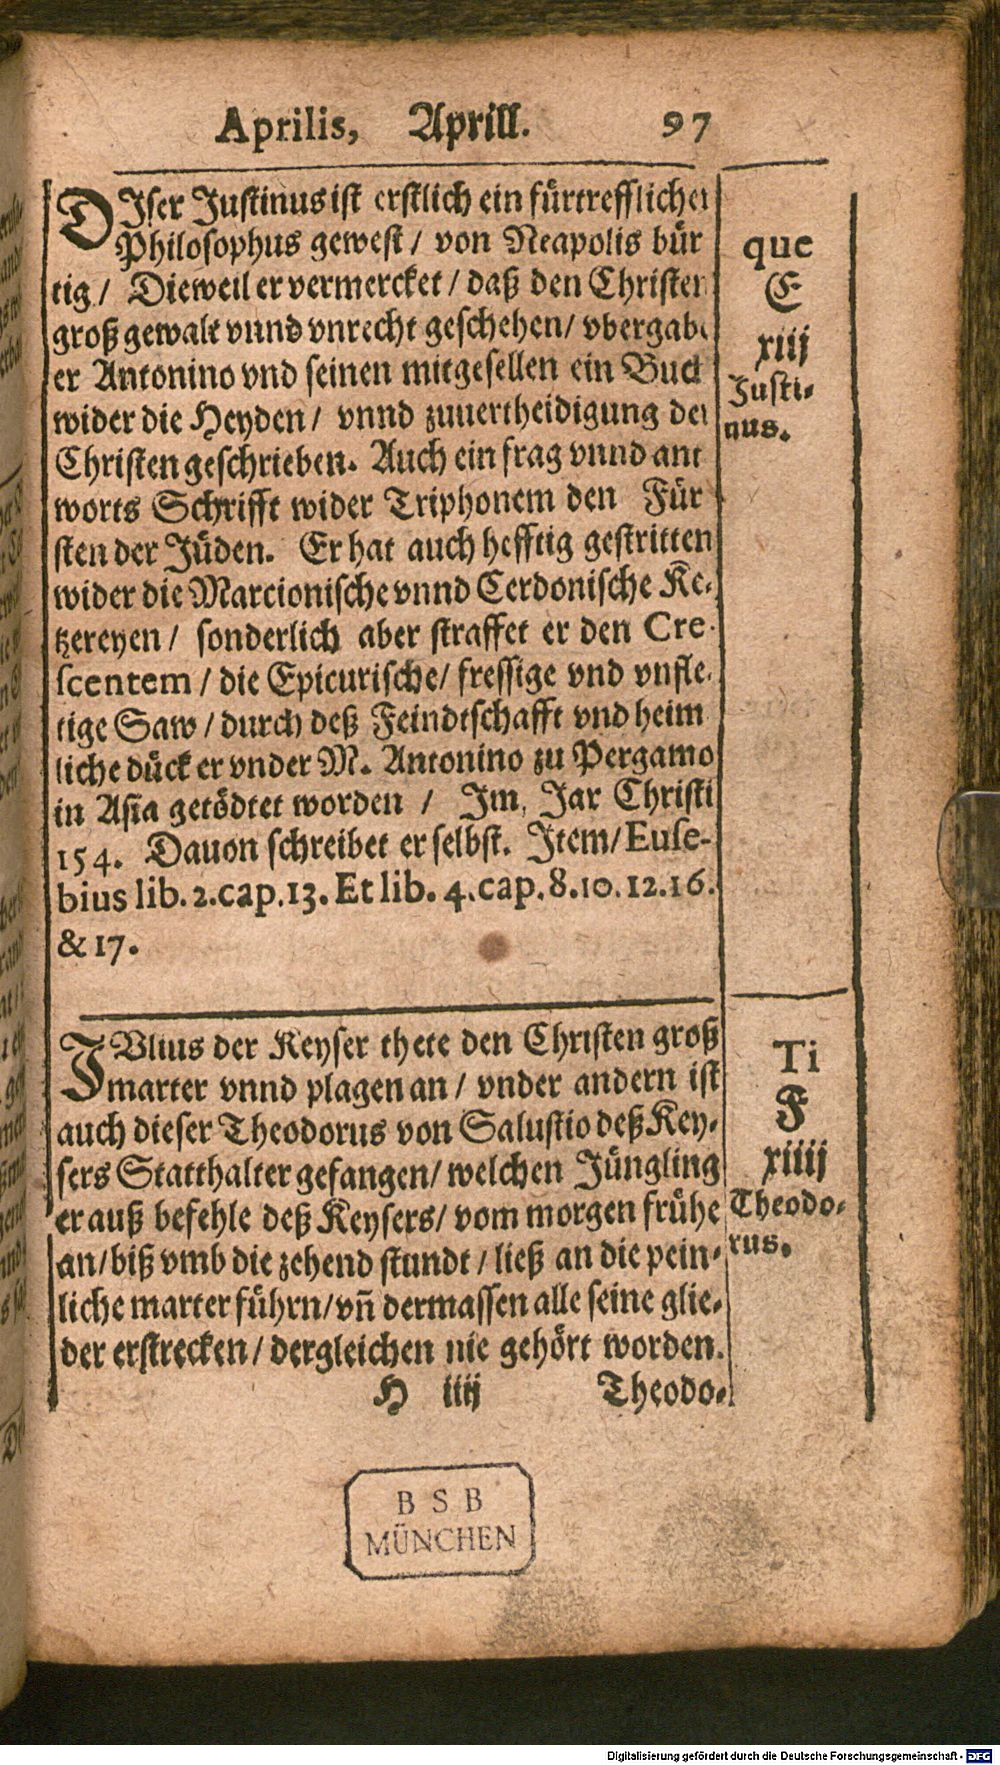 Aprilis, Aprill. 97
DIser Justinus ist erstlich ein fürtrefflicher
Philosophus gewest / von Neapolis bür
tig / Dieweil er vermercket / daß den Christen
groß gewalt vnnd vnrecht geschehen / vbergabe
er Antonino vnd seinen mitgesellen ein Buch
wider die Heyden / vnnd zuuertheidigung der
Christen geschrieben. Auch ein frag vnnd ant
worts Schrifft wider Triphonem den Für
sten der Jüden. Er hat auch hefftig gestritten
wider die Marcionische vnnd Cerdonische Ke-
tzereyen / sonderlich aber straffet er den Cre-
scentem / die Epicurische / fressige vnd vnfle-
tige Saw / durch deß Feindtschafft vnd heim
liche dück er vnder M. Antonino zu Pergamo
in Asia getödtet worden / Im Jar Christi
154. Dauon schreibet er selbst. Item / Euse-
bius lib. 2. cap. 13. Et lib. 4. cap. 8. 10. 12. 16.
& 17.
que
E
xiij
Justi-
nus.
IVlius der Keyser thete den Christen groß
marter vnnd plagen an / vnder andern ist
auch dieser Theodorus von Salustio deß Key-
sers Statthalter gefangen / welchen Jüngling
er auß befehle deß Keysers / vom morgen frühe
an / biß vmb die zehend stundt / ließ an die pein-
liche marter führn / vñ dermassen alle seine glie-
der erstrecken / dergleichen nie gehört worden.
Ti
F
xiiij
Theodo-
rus.
H iiij Theodo-
BSB
MÜNCHEN
Digitalisierung gefördert durch die Deutsche Forschungsgemeinschaft - DFG